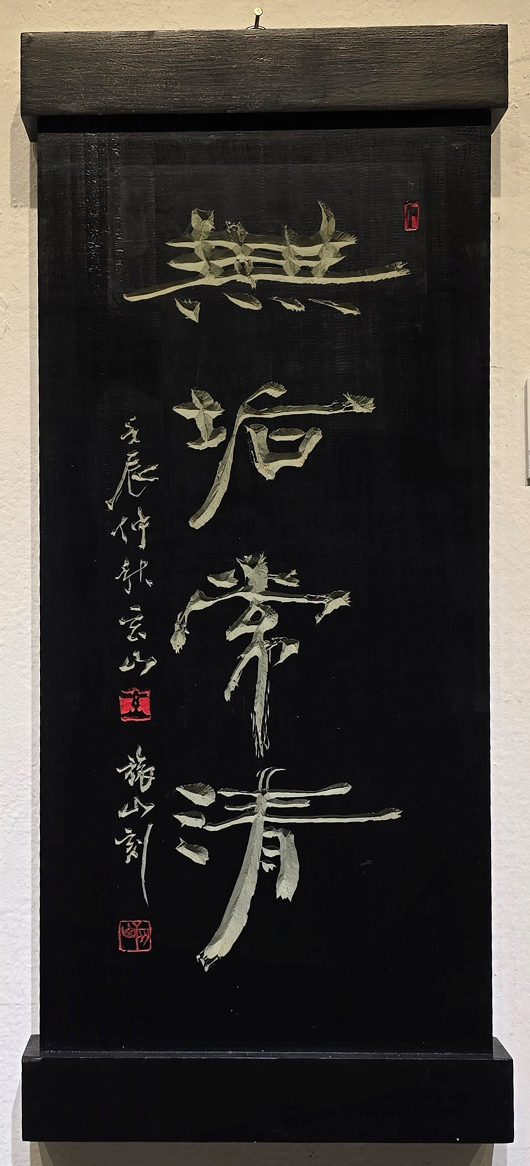 無垢常清
壬辰仲秋玄山
旅山刻